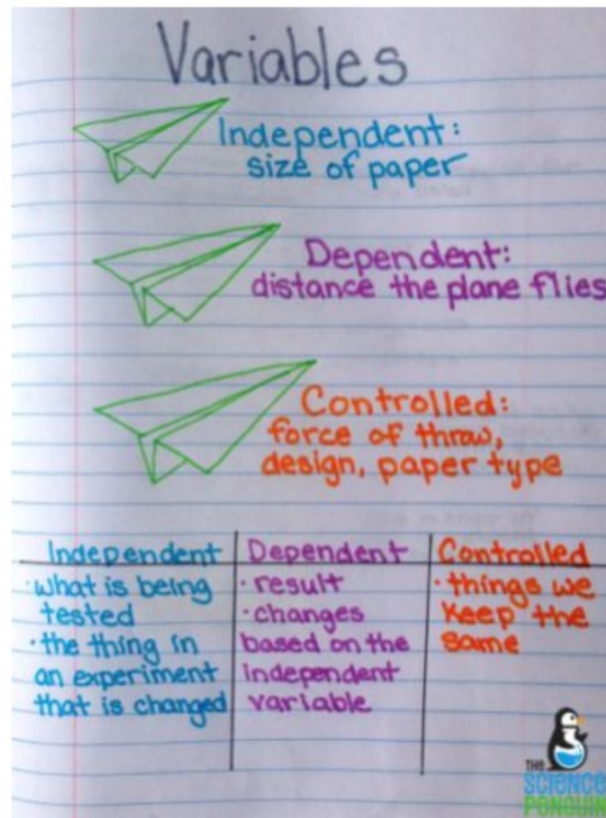 Variables
Independent:
size of paper
Dependent:
distance the plane flies
Controlled:
force of throw,
design, paper type
Independent
· what is being
tested
· the thing in
an experiment
that is changed
Dependent
· result
· changes
based on the
independent
variable
Controlled
· things we
keep the
same
THE
SCIENCE
PENGUIN